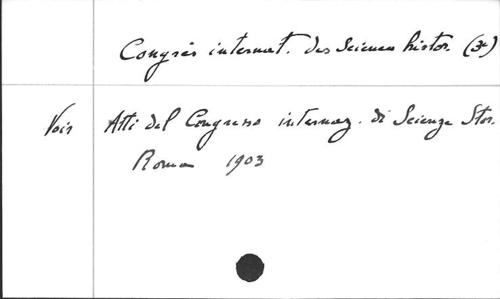 Congrès internat. des Sciences histor. (3e)
Voir Atti del Congresso internaz. di Scienze Stor.
Roma 1903